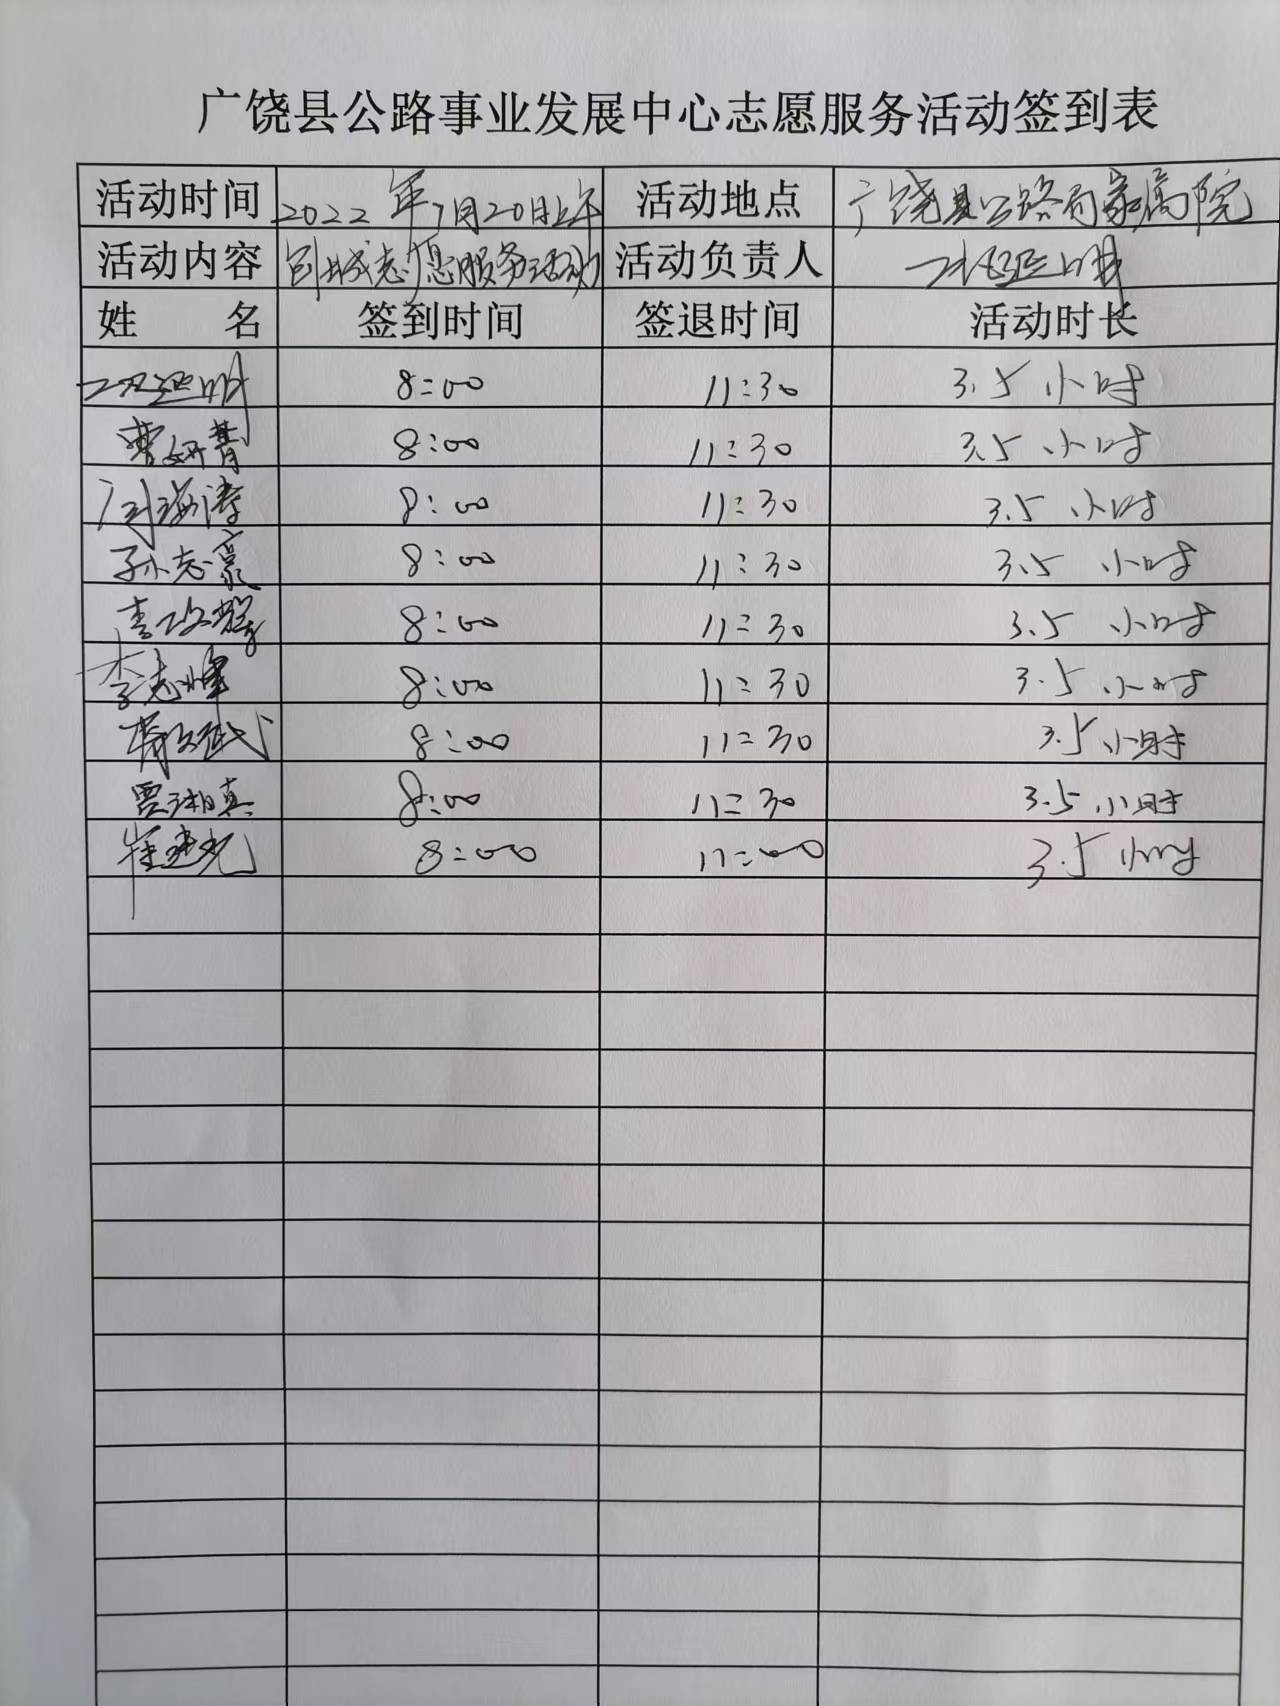 广饶县公路事业发展中心志愿服务活动签到表
活动时间 2022年7月20日上午 活动地点 广饶县公路局家属院
活动内容 创城志愿服务活动 活动负责人
姓 名 签到时间 签退时间 活动时长
8:00 11:30 3.5小时
曹妍菁 8:00 11:30 3.5小时
周海涛 8:00 11:30 3.5小时
孙志豪 8:00 11:30 3.5小时
8:00 11:30 3.5小时
李志峰 8:00 11:30 3.5小时
8:00 11:30 3.5小时
贾湘真 8:00 11:30 3.5小时
崔建光 8:00 11:00 3.5小时